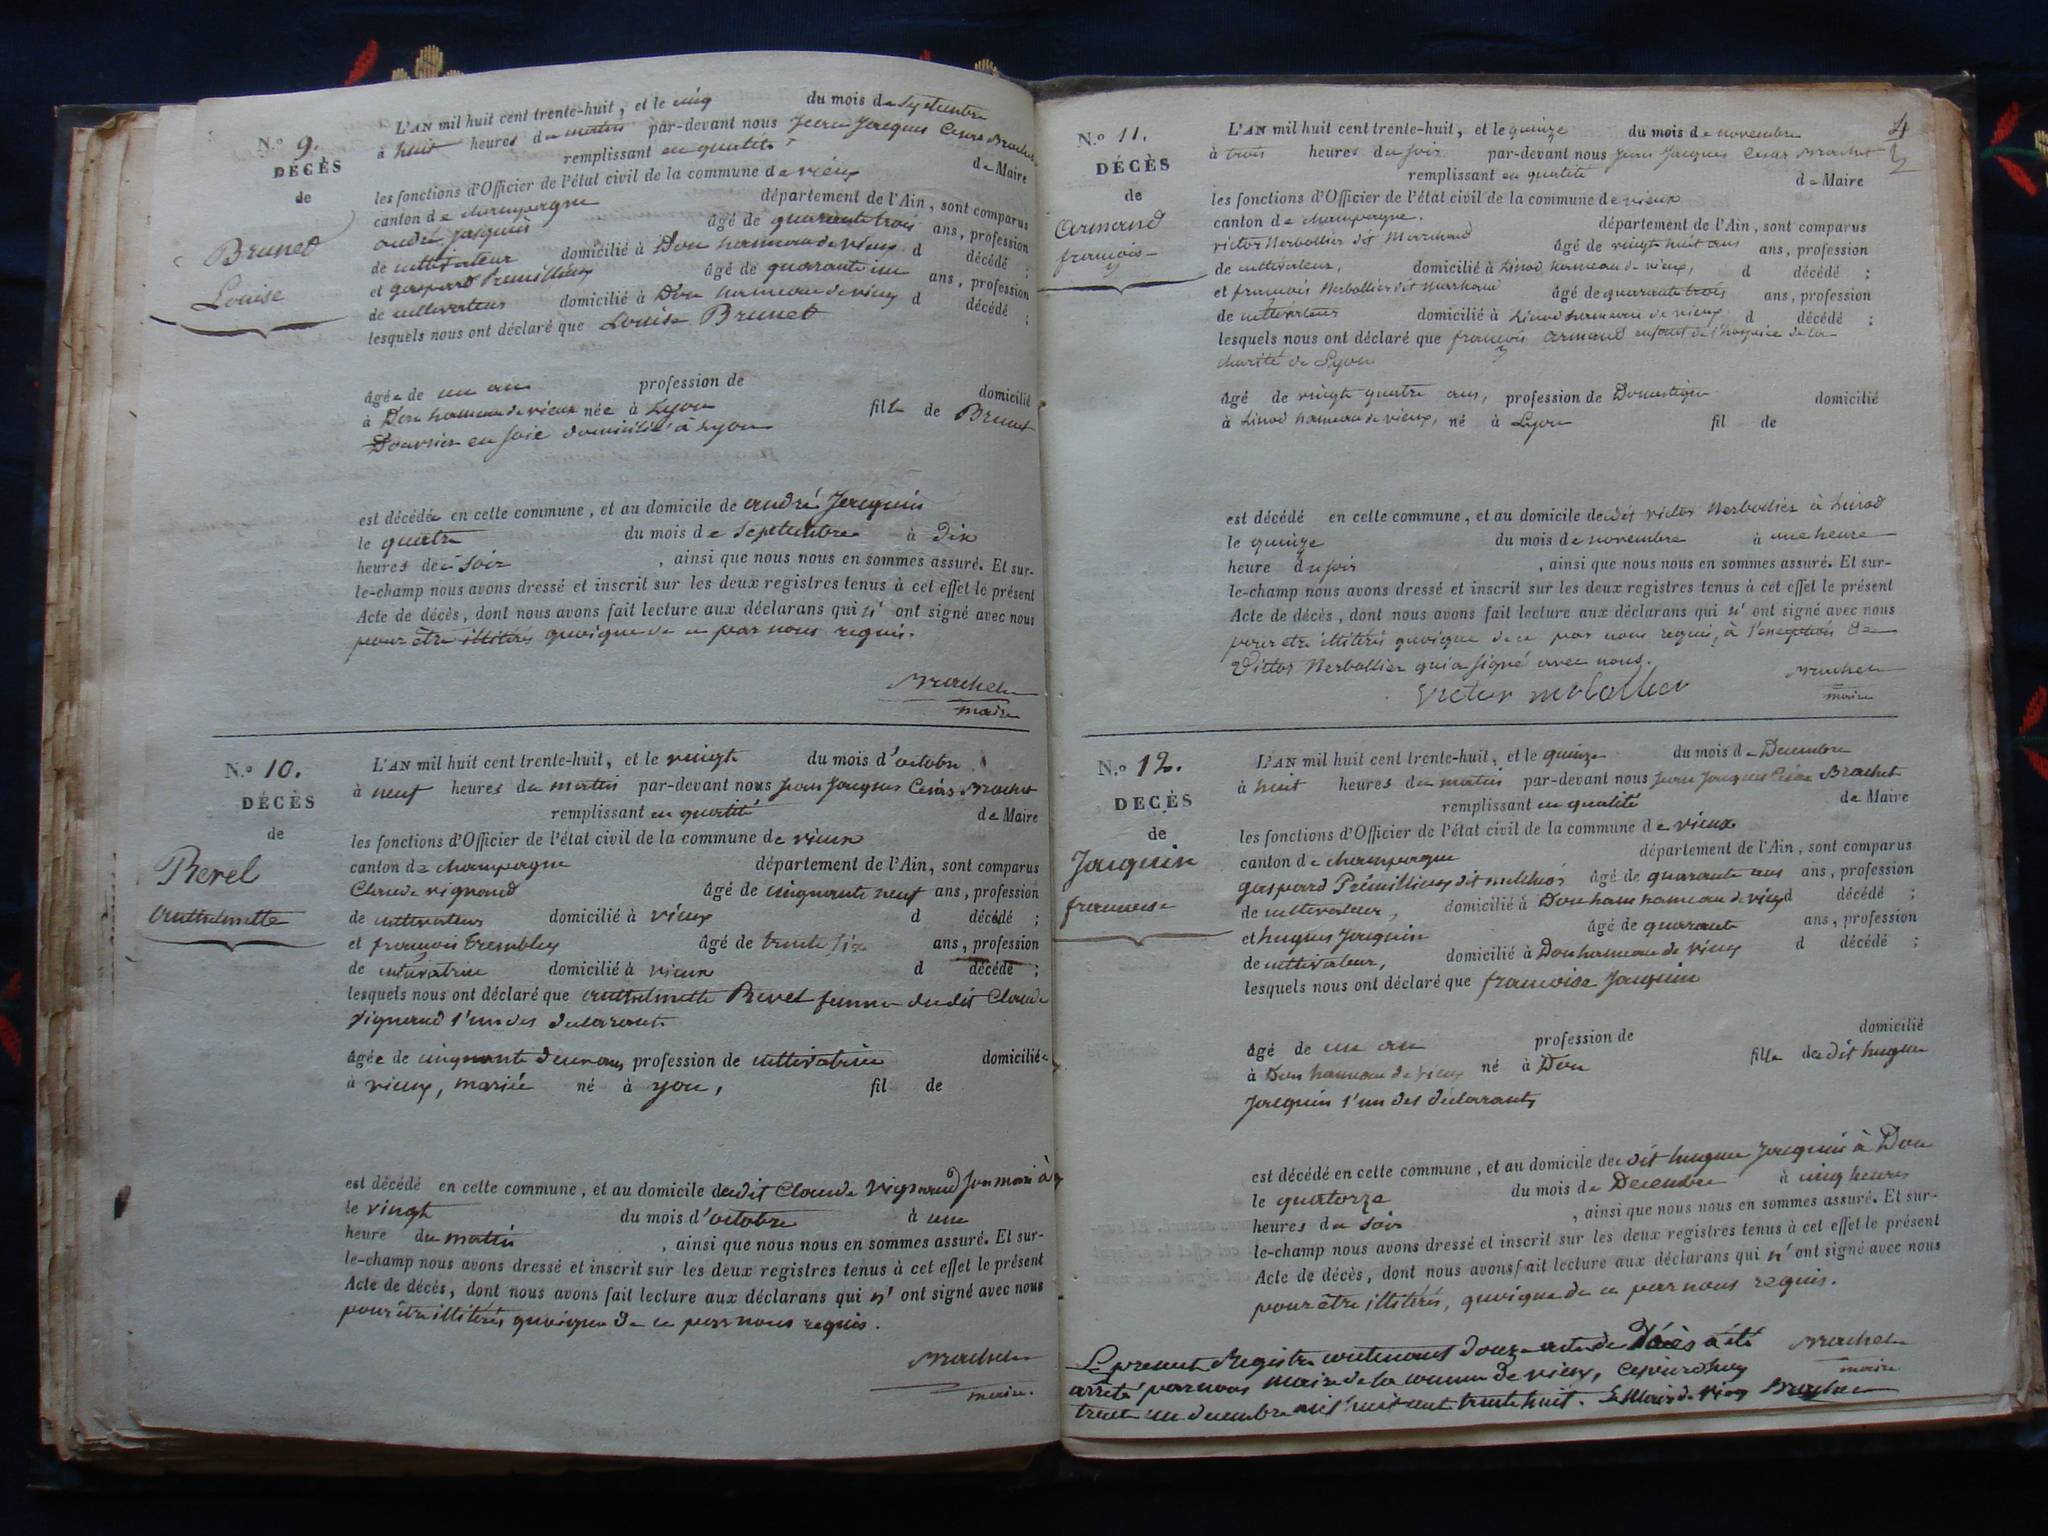 N.o 9.
DÉCÈS
de
Brunet
Louise
L'AN mil huit cent trente-huit, et le cinq du mois de septembre
à huit heures du matin par-devant nous Jean Jacques César Brachet
remplissant en qualité de Maire
les fonctions d'Officier de l'état civil de la commune de vieux
canton de champagne département de l'Ain, sont comparus
andré Jacquin âgé de quarante trois ans, profession
de cultivateur domicilié à Don hameau de vieux d décédé ;
et gaspard Prémillieux âgé de quarante un ans, profession
de cultivateur domicilié à Don hameau de vieux d décédé ;
lesquels nous ont déclaré que Louise Brunet
âgée de un an profession de domicilié
à Don hameau de vieux née à Lyon fille de Brunet
Douvrier en soie domicilié à Lyon
est décédée en cette commune, et au domicile de andré Jacquin
le quatre du mois de septembre à Dix
heures de soir , ainsi que nous nous en sommes assuré. Et sur-
le-champ nous avons dressé et inscrit sur les deux registres tenus à cet effet le présent
Acte de décès, dont nous avons fait lecture aux déclarans qui n' ont signé avec nous
pour être illitérés quoique de ce par nous requis.
Brachet
maire
N.o 10.
DÉCÈS
de
Revel
anthelmette
L'AN mil huit cent trente-huit, et le vingt du mois d'octobre
à neuf heures du matin par-devant nous Jean Jacques César Brachet
remplissant en qualité de Maire
les fonctions d'Officier de l'état civil de la commune de vieux
canton de champagne département de l'Ain, sont comparus
Claude vignand âgé de cinquante neuf ans, profession
de cultivateur domicilié à vieux d décédé ;
et françois Trembley âgé de trente six ans, profession
de cultivatrice domicilié à vieux d décédé ;
lesquels nous ont déclaré que anthelmette Revel femme dudit Claude
vignand l'un des déclarants
âgée de cinquante deux ans profession de cultivatrice domiciliée
à vieux, mariée né à yon, fil de
est décédé en cette commune, et au domicile dudit Claude vignand son mari à
le vingt du mois d'octobre à une
heure du matin , ainsi que nous nous en sommes assuré. Et sur-
le-champ nous avons dressé et inscrit sur les deux registres tenus à cet effet le présent
Acte de décès, dont nous avons fait lecture aux déclarans qui n' ont signé avec nous
pour être illitérés quoique de ce par nous requis.
Brachet
maire.
4
N.o 11.
DÉCÈS
de
Armand
françois
L'AN mil huit cent trente-huit, et le quinze du mois de novembre
à trois heures du soir par-devant nous Jean Jacques César Brachet
remplissant en qualité de Maire
les fonctions d'Officier de l'état civil de la commune de vieux
canton de champagne. département de l'Ain, sont comparus
victor Merbollier dit Marchand âgé de vingt huit ans ans, profession
de cultivateur, domicilié à Linod hameau de vieux, d décédé ;
et françois Merbollier dit Marchand âgé de quarante trois ans, profession
de cultivateur domicilié à Linod hameau de vieux d décédé ;
lesquels nous ont déclaré que françois armand enfant de l'hospice de la
charité de Lyon
âgé de vingt quatre ans, profession de Domestique domicilié
à Linod hameau de vieux, né à Lyon fil de
est décédé en cette commune, et au domicile dudit victor Merbollier à Linod
le quinze du mois de novembre à une heure
heure du soir , ainsi que nous nous en sommes assuré. Et sur-
le-champ nous avons dressé et inscrit sur les deux registres tenus à cet effet le présent
Acte de décès, dont nous avons fait lecture aux déclarans qui n' ont signé avec nous
pour être illitérés quoique de ce par nous requis, à l'exception de
Victor Merbollier qui a signé avec nous.
Victor merbollier
Brachet
maire
N.o 12.
DÉCÈS
de
Jacquin
françoise
L'AN mil huit cent trente-huit, et le quinze du mois de Décembre
à huit heures du matin par-devant nous Jean Jacques César Brachet
remplissant en qualité de Maire
les fonctions d'Officier de l'état civil de la commune de vieux
canton de champagne département de l'Ain, sont comparus
gaspard Prémillieux dit melchior âgé de quarante ans ans, profession
de cultivateur, domicilié à Don ham hameau de vieux d décédé ;
et hugues Jacquin âgé de quarante ans, profession
de cultivateur, domicilié à Don hameau de vieux d décédé ;
lesquels nous ont déclaré que françoise Jacquin
âgé de un an profession de domicilié
à Don hameau de vieux né à Don fille dudit hugues
Jacquin l'un des déclarants
est décédé en cette commune, et au domicile dudit hugues Jacquin à Don
le quatorze du mois de Décembre à cinq heures
heures du soir , ainsi que nous nous en sommes assuré. Et sur-
le-champ nous avons dressé et inscrit sur les deux registres tenus à cet effet le présent
Acte de décès, dont nous avons fait lecture aux déclarans qui n' ont signé avec nous
pour être illitérés, quoique de ce par nous requis.
Brachet
maire
Le present Registre contenant douze actes de Décès a été
arrêté par nous Maire de la commune de vieux, cejourd'huy
trente un decembre mil huit cent trente huit. Le Maire de Vieux Brachet